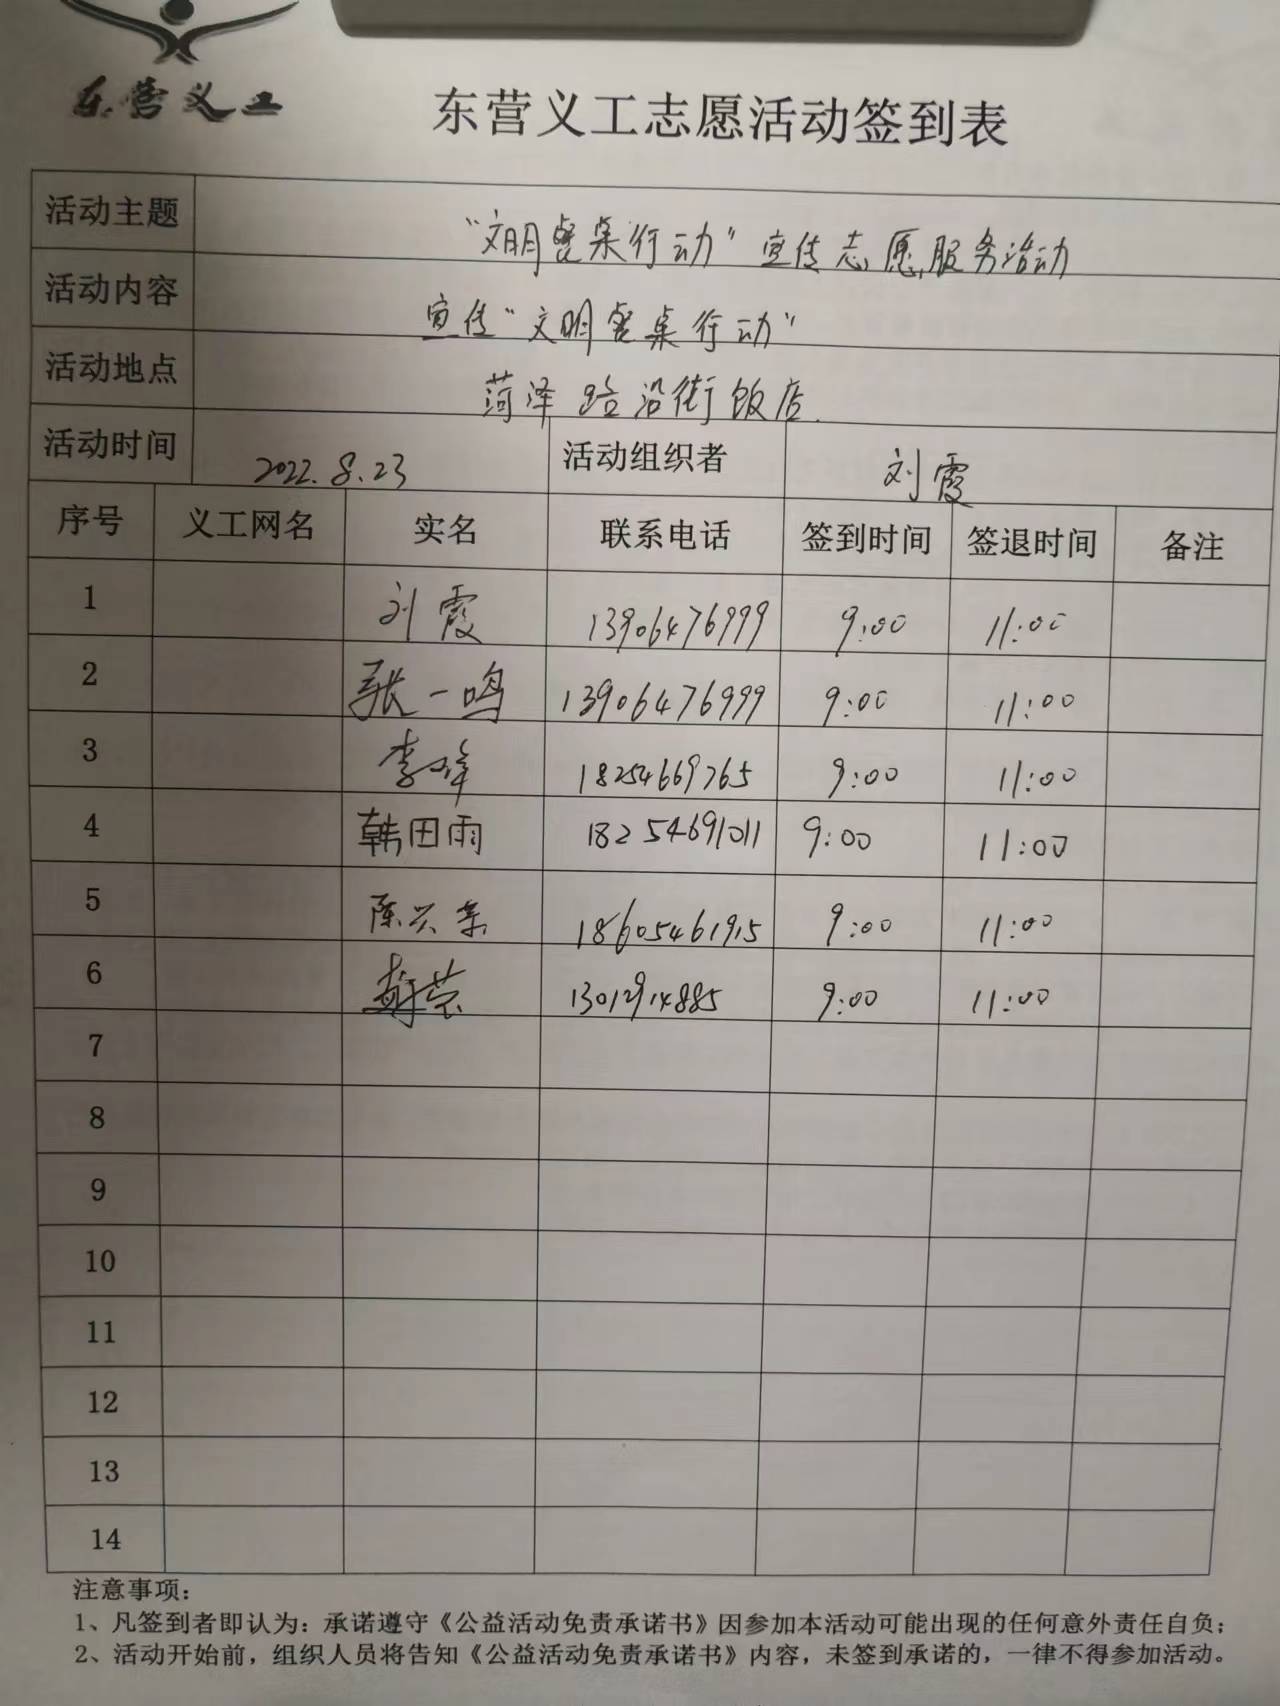 东营义工
东营义工志愿活动签到表
活动主题 “文明餐桌行动”宣传志愿服务活动
活动内容 宣传“文明餐桌行动”
活动地点 菏泽路沿街饭店.
活动时间 2022.8.23 活动组织者 刘霞
序号 义工网名 实名 联系电话 签到时间 签退时间 备注
1 刘霞 13906476999 9:00 11:00
2 张一鸣 13906476999 9:00 11:00
3 李峰 18254669765 9:00 11:00
4 韩田雨 18254691011 9:00 11:00
5 陈兴 18605461915 9:00 11:00
6 13012914885 9:00 11:00
7
8
9
10
11
12
13
14
注意事项：
1、凡签到者即认为：承诺遵守《公益活动免责承诺书》因参加本活动可能出现的任何意外责任自负；
2、活动开始前，组织人员将告知《公益活动免责承诺书》内容，未签到承诺的，一律不得参加活动。